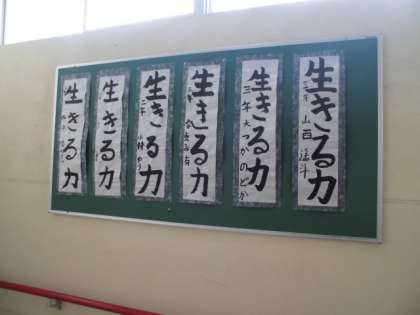 生きる力
三年 山西
生きる力
三年 大つかのどか
生きる力
生きる力
三年 小林
生きる力
生きる力